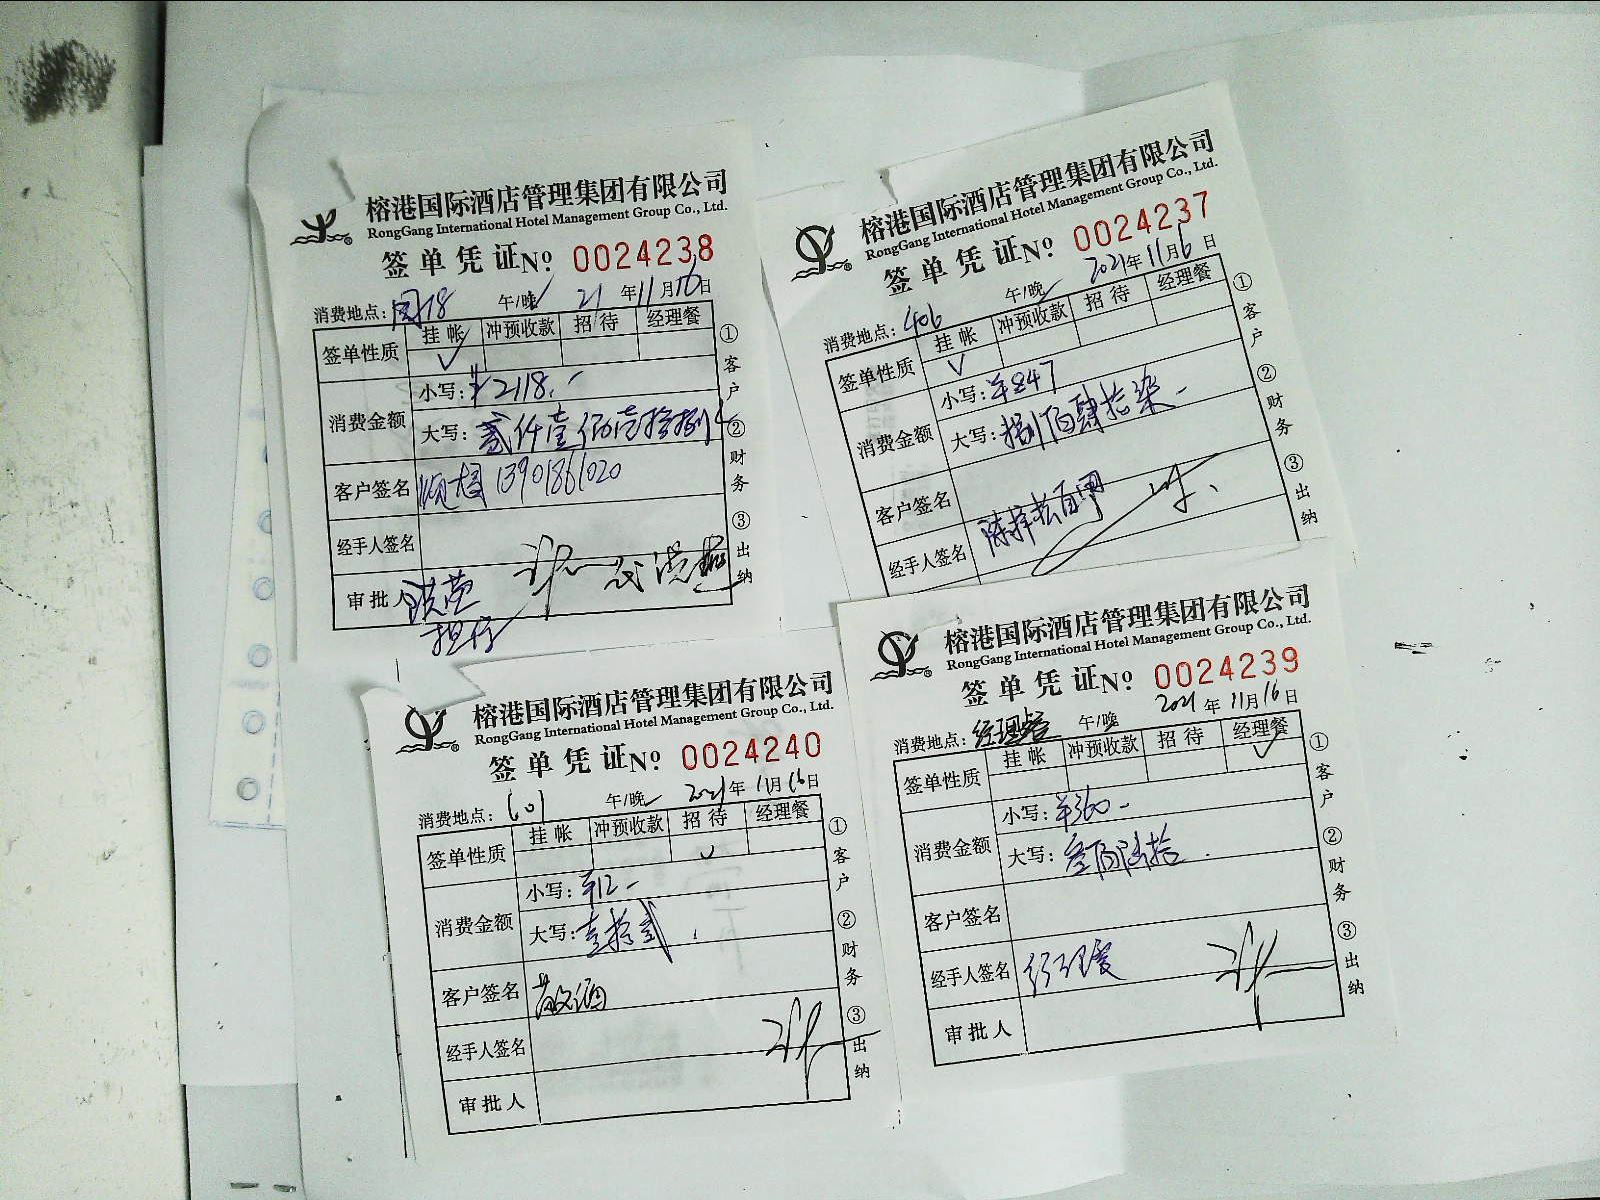 榕港国际酒店管理集团有限公司
RongGang International Hotel Management Group Co., Ltd.
签单凭证 No. 0024238
消费地点: 午/晚✓ 21年11月16日
签单性质 挂帐 冲预收款 招待 经理餐
✓
消费金额 小写: ¥2118.-
大写: 贰仟壹佰壹拾捌
客户签名 13901861020
经手人签名
审批人
担保
①客户 ②财务 ③出纳
榕港国际酒店管理集团有限公司
RongGang International Hotel Management Group Co., Ltd.
签单凭证 No. 0024237
消费地点: 406 午/晚✓ 2021年11月16日
签单性质 挂帐 冲预收款 招待 经理餐
✓
消费金额 小写: ¥847
大写: 捌佰肆拾柒-
客户签名
经手人签名
①客户 ②财务 ③出纳
榕港国际酒店管理集团有限公司
RongGang International Hotel Management Group Co., Ltd.
签单凭证 No. 0024240
消费地点: 601 午/晚✓ 2021年11月16日
签单性质 挂帐 冲预收款 招待 经理餐
✓
消费金额 小写: ¥12-
大写: 壹拾贰
客户签名 敬酒
经手人签名
审批人
①客户 ②财务 ③出纳
榕港国际酒店管理集团有限公司
RongGang International Hotel Management Group Co., Ltd.
签单凭证 No. 0024239
消费地点: 经理餐 午/晚 2021年11月16日
签单性质 挂帐 冲预收款 招待 经理餐
✓
消费金额 小写: ¥360-
大写: 叁佰陆拾
客户签名
经手人签名
审批人
①客户 ②财务 ③出纳